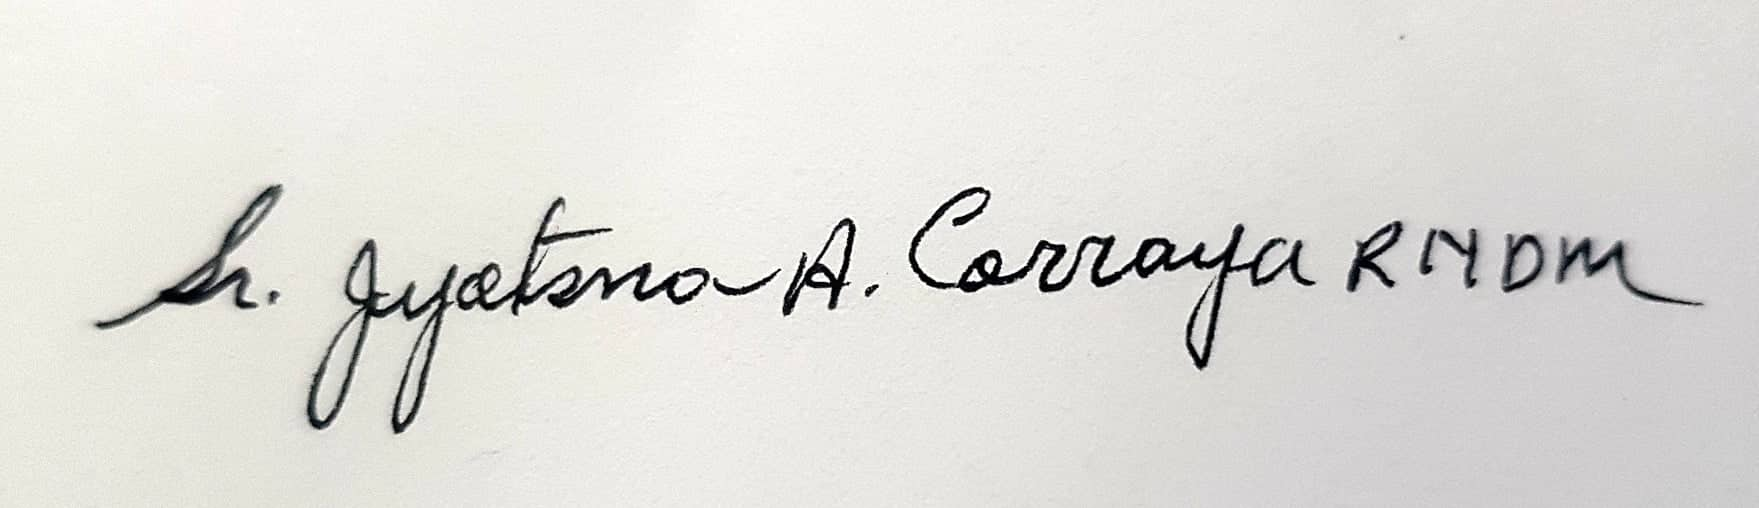 Sr. Jyotsna A. Corraya RNDM